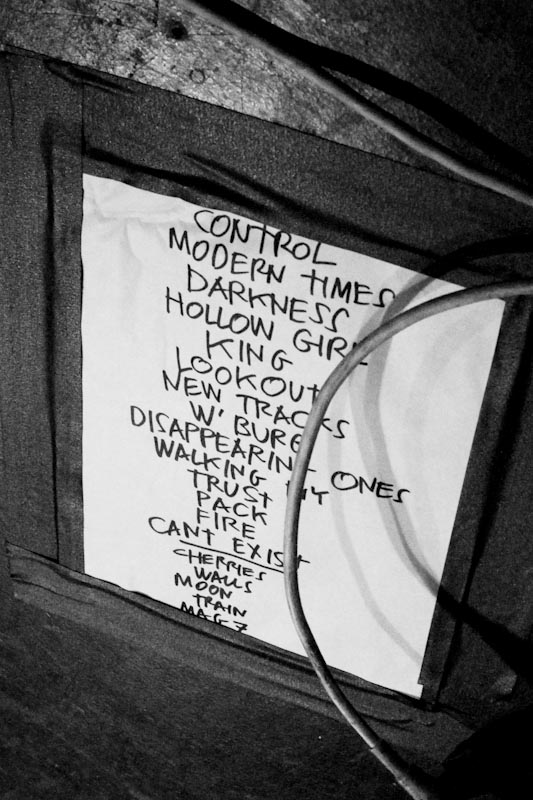 CONTROL
MODERN TIMES
DARKNESS
HOLLOW GIRL
KING
LOOKOUT
NEW TRACKS
W' BURG
DISAPPEARING ONES
WALKING
TRUST
PACK
FIRE
CANT EXIST
CHERRIES
WALLS
MOON
TRAIN
MAG 7